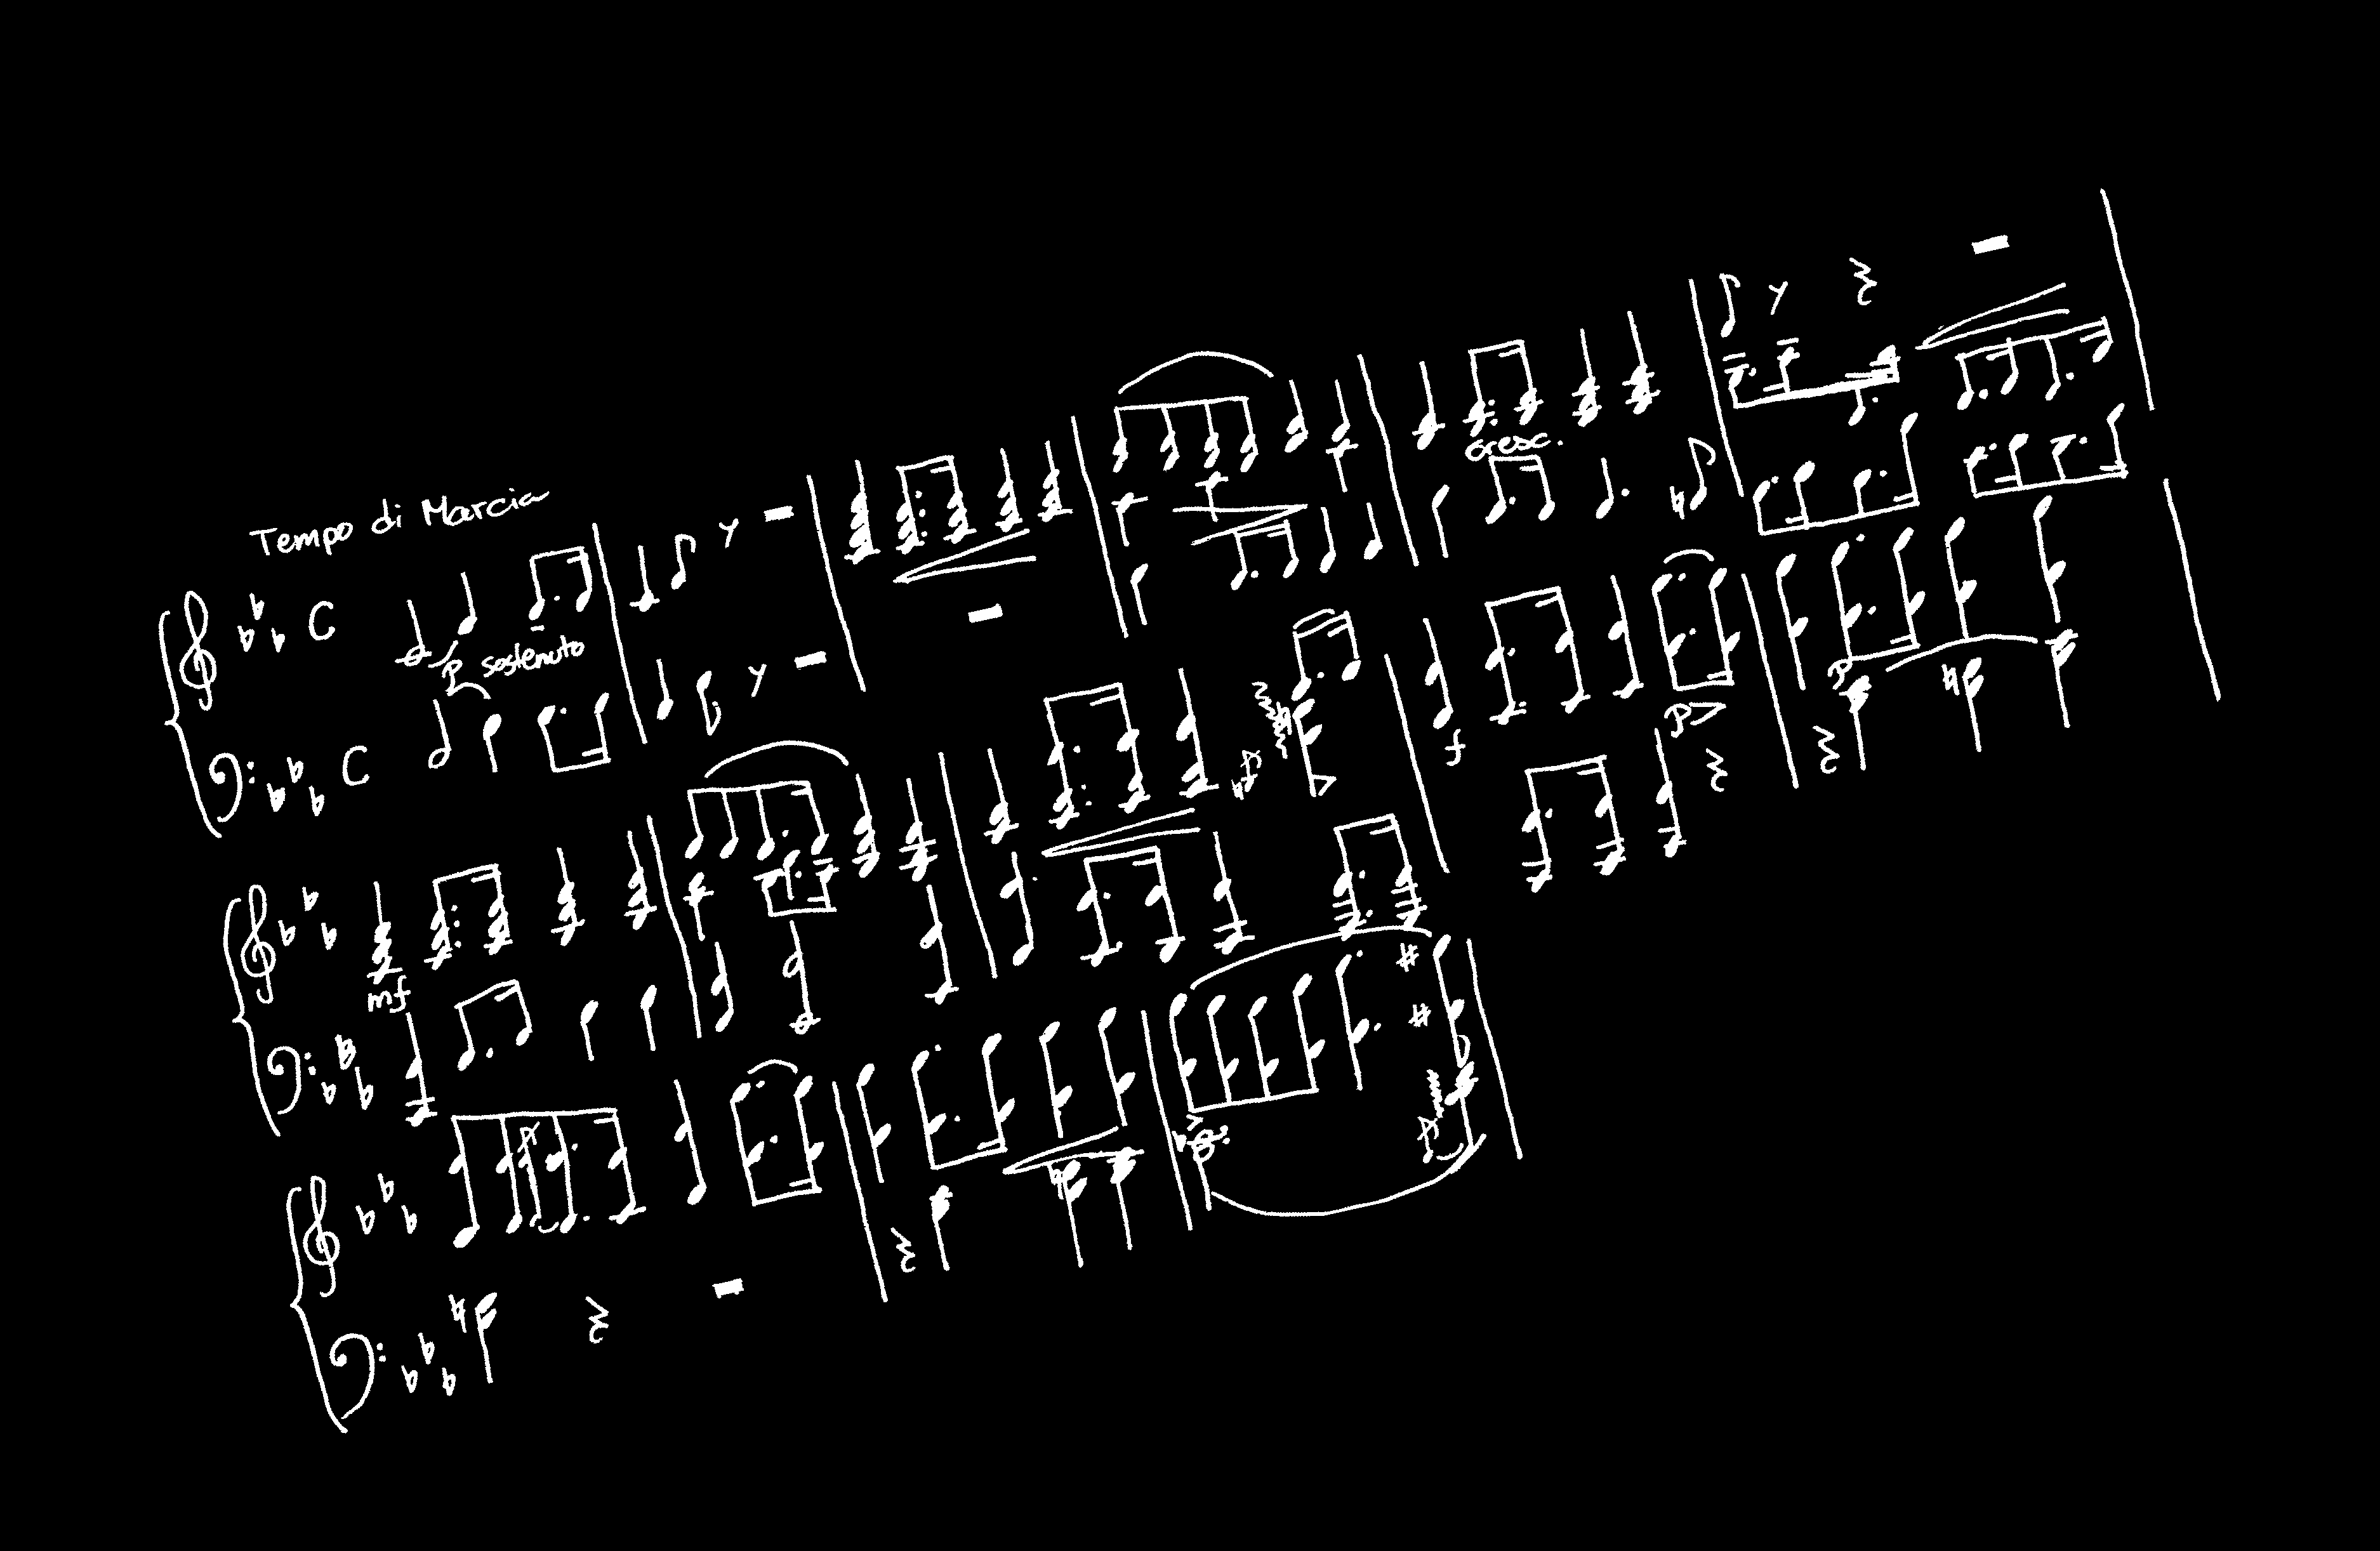 Tempo di Marcia
C
p sostenuto
cresc.
C
mf
f
p
p